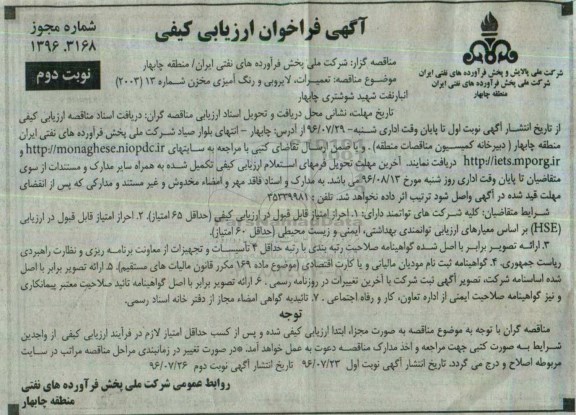 آگهی فراخوان ارزیابی کیفی
شماره مجوز
۱۳۹۶.۳۱۶۸
نوبت دوم
شرکت ملی پالایش و پخش فرآورده های نفتی ایران
شرکت ملی پخش فرآورده های نفتی ایران
منطقه چابهار
مناقصه گزار: شرکت ملی پخش فرآورده های نفتی ایران/ منطقه چابهار
موضوع مناقصه: تعمیرات، لایروبی و رنگ آمیزی مخزن شماره ۱۳ (۲۰۰۳)
انبارنفت شهید شوشتری چابهار
تاریخ مهلت، نشانی محل دریافت و تحویل اسناد ارزیابی مناقصه گران: دریافت اسناد مناقصه ارزیابی کیفی
از تاریخ انتشار آگهی نوبت اول تا پایان وقت اداری شنبه- ۹۶/۰۷/۲۹ از آدرس: چابهار - انتهای بلوار صیاد شرکت ملی پخش فرآورده های نفتی ایران
منطقه چابهار ( دبیرخانه کمیسیون مناقصات منطقه) . و یا ضمن ارسال تقاضای کتبی با مراجعه به سایتهای http://monaghese.niopdc.ir و
http://iets.mporg.ir دریافت نمایند. آخرین مهلت تحویل فرمهای استعلام ارزیابی کیفی تکمیل شده به همراه سایر مدارک و مستندات از سوی
متقاضیان تا پایان وقت اداری روز شنبه مورخ ۹۶/۰۸/۱۳ می باشد. به مدارک و اسناد فاقد مهر و امضاء مخدوش و غیر مستند و مدارکی که پس از انقضای
مهلت قید شده در آگهی واصل شود ترتیب اثر داده نخواهد شد. تلفن : ۳۵۳۳۹۹۸۱
شرایط متقاضیان: کلیه شرکت های توانمند دارای: ۱. احراز امتیاز قابل قبول در ارزیابی کیفی (حداقل ۶۵ امتیاز). ۲. احراز امتیاز قابل قبول در ارزیابی
(HSE) بر اساس معیارهای ارزیابی توانمندی بهداشتی، ایمنی و زیست محیطی (حداقل ۶۰ امتیاز).
۳. ارائه تصویر برابر با اصل شده گواهینامه صلاحیت رتبه بندی با رتبه حداقل ۴ تأسیسات و تجهیزات از معاونت برنامه ریزی و نظارت راهبردی
ریاست جمهوری. ۴. گواهینامه ثبت نام مودیان مالیاتی و یا کارت اقتصادی (موضوع ماده ۱۶۹ مکرر قانون مالیات های مستقیم). ۵. ارائه تصویر برابر با اصل
شده اساسنامه شرکت، تصویر آگهی ثبت شرکت با آخرین تغییرات در روزنامه رسمی . ۶. ارائه تصویر برابر با اصل گواهینامه تائید صلاحیت معتبر پیمانکاری
و نیز گواهینامه صلاحیت ایمنی از اداره تعاون، کار و رفاه اجتماعی . ۷. تائیدیه گواهی امضاء مجاز از دفتر خانه اسناد رسمی.
توجه
مناقصه گران با توجه به موضوع مناقصه به صورت مجزا، ابتدا ارزیابی کیفی شده و پس از کسب حداقل امتیاز لازم در فرآیند ارزیابی کیفی از واجدین
شرایط به صورت کتبی جهت مراجعه و اخذ مدارک مناقصه دعوت به عمل خواهد آمد. *در صورت تغییر در زمانبندی مراحل مناقصه مراتب در سایت
مربوطه اصلاح و درج می گردد. تاریخ انتشار آگهی نوبت اول ۹۶/۰۷/۲۳ تاریخ انتشار آگهی نوبت دوم ۹۶/۰۷/۲۶
روابط عمومی شرکت ملی پخش فرآورده های نفتی
منطقه چابهار